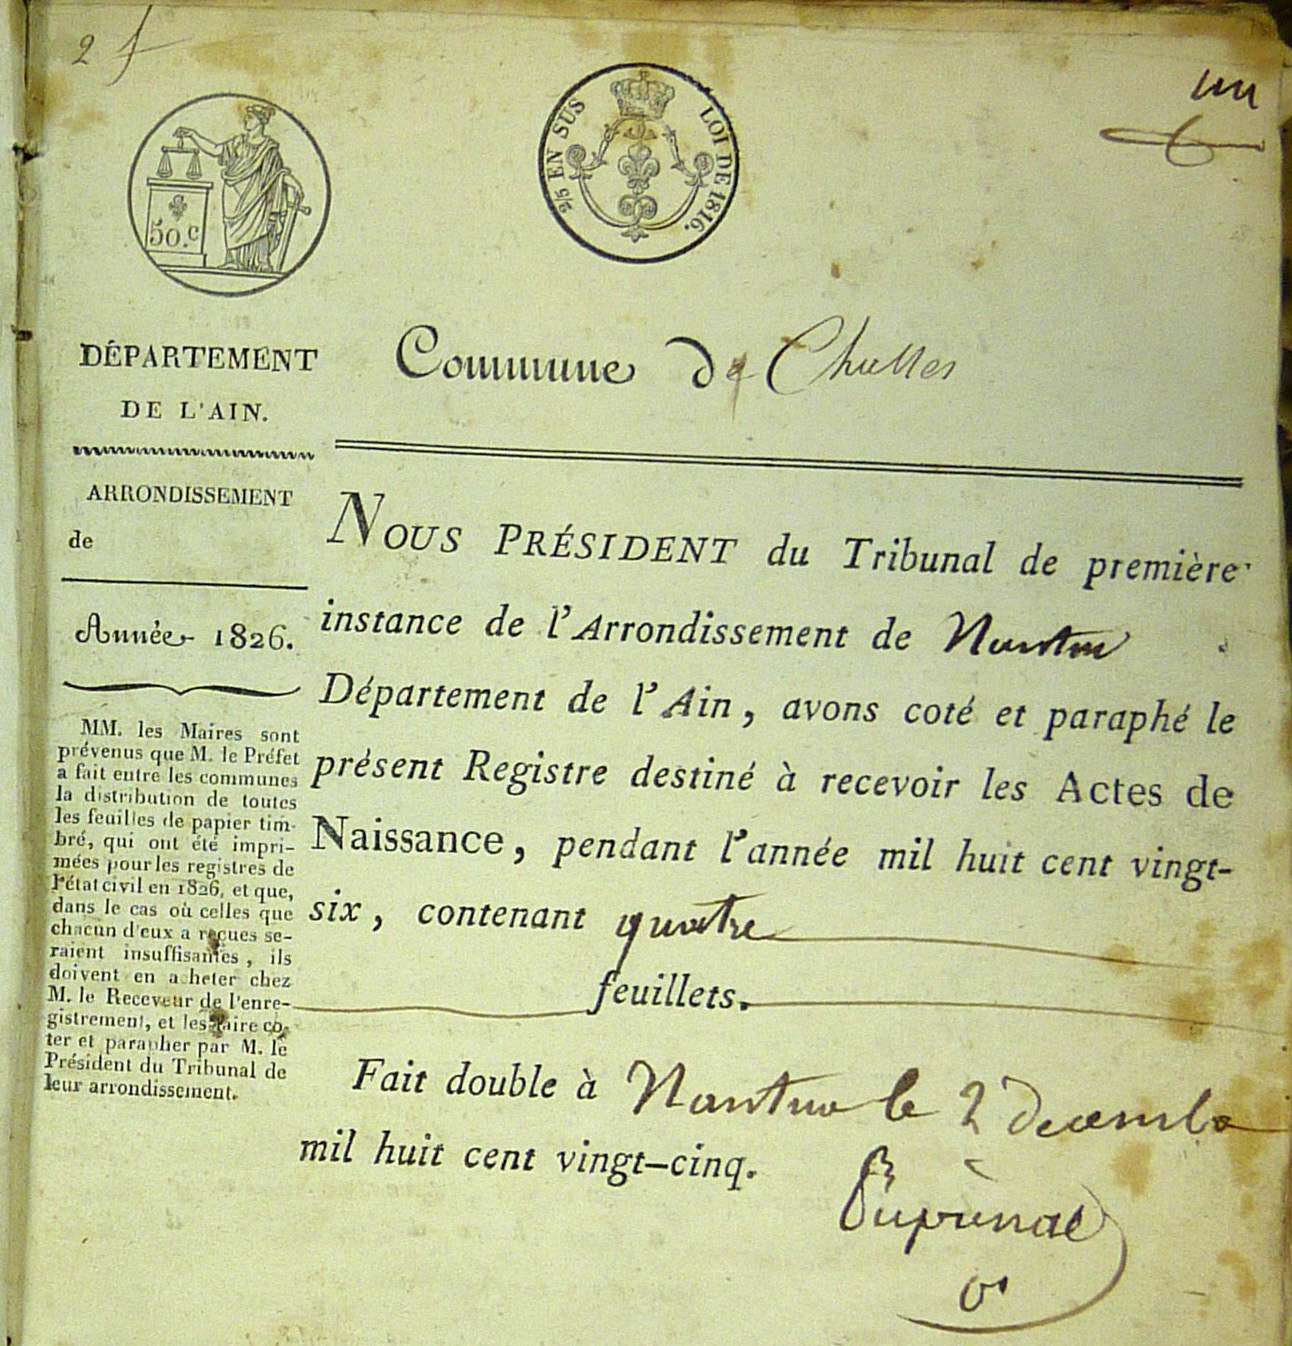 2 f
un
50.c
2/5 EN SUS LOI DE 1816.
DÉPARTEMENT
DE L'AIN.
ARRONDISSEMENT
de
Année 1826.
MM. les Maires sont
prévenus que M. le Préfet
a fait entre les communes
la distribution de toutes
les feuilles de papier tim-
bré, qui ont été impri-
mées pour les registres de
l'état civil en 1826, et que,
dans le cas où celles que
chacun d'eux a reçues se-
raient insuffisantes, ils
doivent en acheter chez
M. le Receveur de l'enre-
gistrement, et les faire co-
ter et parapher par M. le
Président du Tribunal de
leur arrondissement.
Commune de Challes
NOUS PRÉSIDENT du Tribunal de première
instance de l'Arrondissement de Nantua
Département de l'Ain, avons coté et paraphé le
présent Registre destiné à recevoir les Actes de
Naissance, pendant l'année mil huit cent vingt-
six, contenant quatre
feuillets.
Fait double à Nantua le 2 decembre
mil huit cent vingt-cinq.